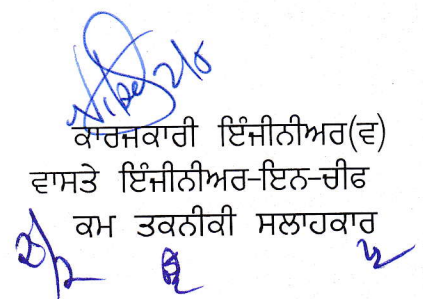 ਕਾਰਜਕਾਰੀ ਇੰਜੀਨੀਅਰ(ਵ)
ਵਾਸਤੇ ਇੰਜੀਨੀਅਰ-ਇਨ-ਚੀਫ
ਕਮ ਤਕਨੀਕੀ ਸਲਾਹਕਾਰ